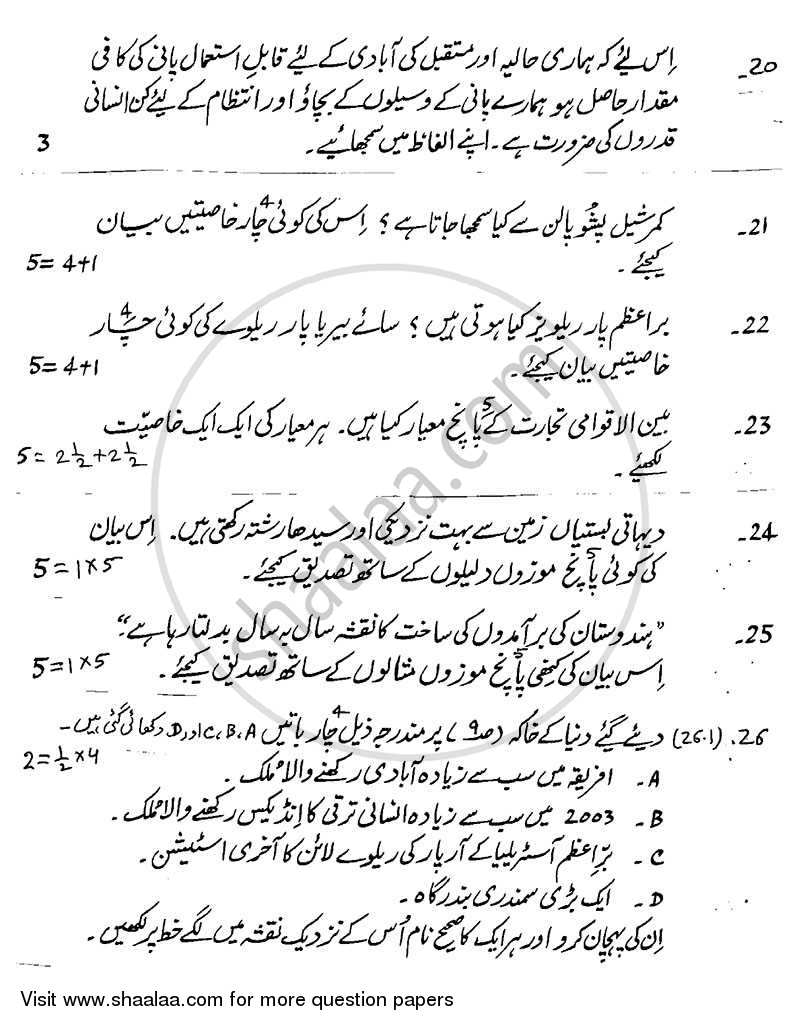 20۔ اِس لئے کہ ہماری حالیہ اور مستقبل کی آبادی کے لئے قابلِ استعمال پانی کی کافی
مقدار حاصل ہو ہمارے پانی کے وسیلوں کے بچاؤ اور انتظام کے لئے کن انسانی
قدروں کی ضرورت ہے۔ اپنے الفاظ میں سمجھائیے۔ 3
21۔ کمرشیل پشُو پالن سے کیا سمجھا جاتا ہے؟ اِس کی کوئی چار 4 خاصیتیں بیان
کیجئے۔ 5=4+1
22۔ براعظم پار ریلویز کیا ہوتی ہیں؟ سائے بیریا پار ریلوے کی کوئی چار 4
خاصیتیں بیان کیجئے۔ 5=4+1
23۔ بین الاقوامی تجارت کے پانچ 5 معیار کیا ہیں۔ ہر معیار کی ایک ایک خاصیّت
لکھیئے۔ 5=2½+2½
24۔ دیہاتی بستیاں زمین سے بہت نزدیکی اور سیدھا رشتہ رکھتی ہیں۔ اِس بیان
کی کوئی پانچ 5 موزوں دلیلوں کے ساتھ تصدیق کیجئے۔ 5=1×5
25۔ "ہندوستان کی برآمدوں کی ساخت کا نقشہ سال بہ سال بدلتا رہا ہے۔"
اِس بیان کی کِنھی پانچ 5 موزوں مثالوں کے ساتھ تصدیق کیجئے۔ 5=1×5
26۔ (26.1) دیئے گئے دنیا کے خاکہ (ص 9) پر مندرجہ ذیل چار 4 باتیں A،B،C اور D دکھائی گئی ہیں۔
2=½×4
A۔ افریقہ میں سب سے زیادہ آبادی رکھنے والا مُلک۔
B۔ 2003 میں سب سے زیادہ انسانی ترقی کا اِنڈیکس رکھنے والا مُلک۔
C۔ برِّاعظم آسٹریلیا کے آرپار کی ریلوے لائن کا آخری اسٹیشن۔
D۔ ایک بڑی سمندری بندرگاہ۔
اِن کی پہچان کرو اور ہر ایک کا صحیح نام اُس کے نزدیک نقشہ میں لگے خط پر لکھیں۔
shaalaa.com
Visit www.shaalaa.com for more question papers